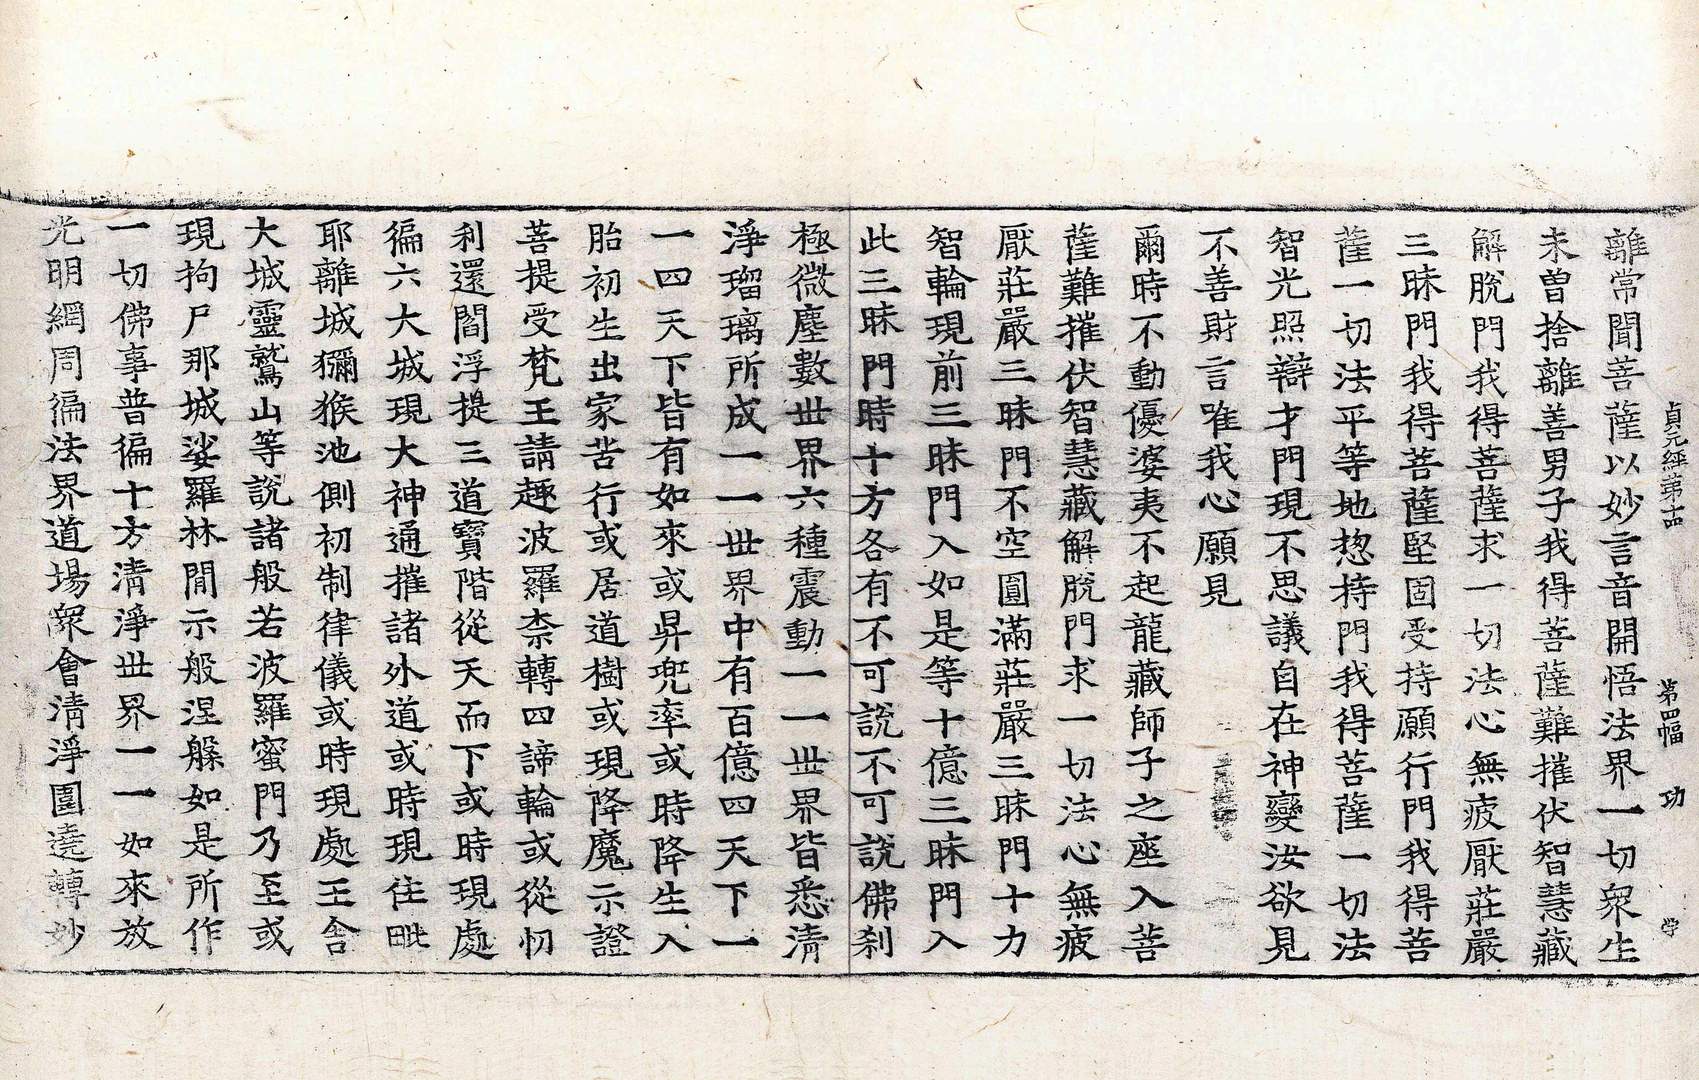 貞元經第十四 第四幅 功 学
離常聞菩薩以妙言音開悟法界一切衆生
未曾捨離善男子我得菩薩難摧伏智慧藏
解脫門我得菩薩求一切法心無疲厭莊嚴
三昧門我得菩薩堅固受持願行門我得菩
薩一切法平等地揔持門我得菩薩一切法
智光照辯才門現不思議自在神變汝欲見
不善財言唯我心願見
爾時不動優婆夷不起龍藏師子之座入菩
薩難摧伏智慧藏解脫門求一切法心無疲
厭莊嚴三昧門不空圓滿莊嚴三昧門十力
智輪現前三昧門入如是等十億三昧門入
此三昧門時十方各有不可說不可說佛刹
極微塵數世界六種震動一一世界皆悉清
淨瑠璃所成一一世界中有百億四天下一
一四天下皆有如來或昇兜率或時降生入
胎初生出家苦行或居道樹或現降魔示證
菩提受梵王請趣波羅柰轉四諦輪或從忉
利還閻浮提三道寶階從天而下或時現處
徧六大城現大神通摧諸外道或時現住毗
耶離城獼猴池側初制律儀或時現處王舍
大城靈鷲山等說諸般若波羅蜜門乃至或
現拘尸那城娑羅林閒示般涅槃如是所作
一切佛事普徧十方清淨世界一一如來放
光明網周徧法界道場衆會清淨圍遶轉妙